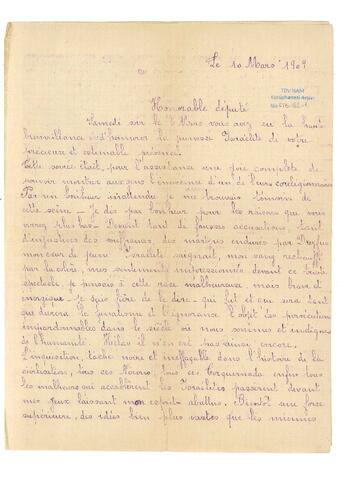 Le 10 Mars 1909
TDV İSAM
Kütüphanesi Arşivi
No
Honorable député
Samedi soir le 6 Mars vous avez eu la haute
bienveillance d'honorer la jeunesse Israélite de votre
précieuse et estimable présence.
Cette soirée était pour l'assistance une joie complète de
pouvoir montrer aux gens l'innocence d'un de leurs coreligionnaires
Par un bonheur inattendu je me trouvais témoin de
cette scène - Je dis par bonheur pour les raisons que vous
verrez plus bas - Devant tant de fausses accusations, tant
d'injustices des souffrances, des martyres endurés par Dreyfus
mon cœur de jeune Israélite saignait, mon sang réchauffé
par la colère, mes sentiments impressionnés devant ce triste
spectacle, je pensais à cette race malheureuse, mais brave et
énergique - Je suis fière de le dire - qui fut et que sera tant
que durera le fanatisme et l'ignorance l'objet des persécutions
impardonnables dans le siècle où nous sommes et indignes
de l'humanité. Hélas il n'en est pas ainsi encore.
L'inquisition, tâche noire et ineffaçable dans l'histoire de la
civilisation, tous ces Nérons, tous ces Torquemada enfin tous
les malheurs qui accablèrent les Israélites passèrent devant
mes yeux laissant mon esprit abattu. Bientôt une force
supérieure, des idées bien plus vastes que les miennes